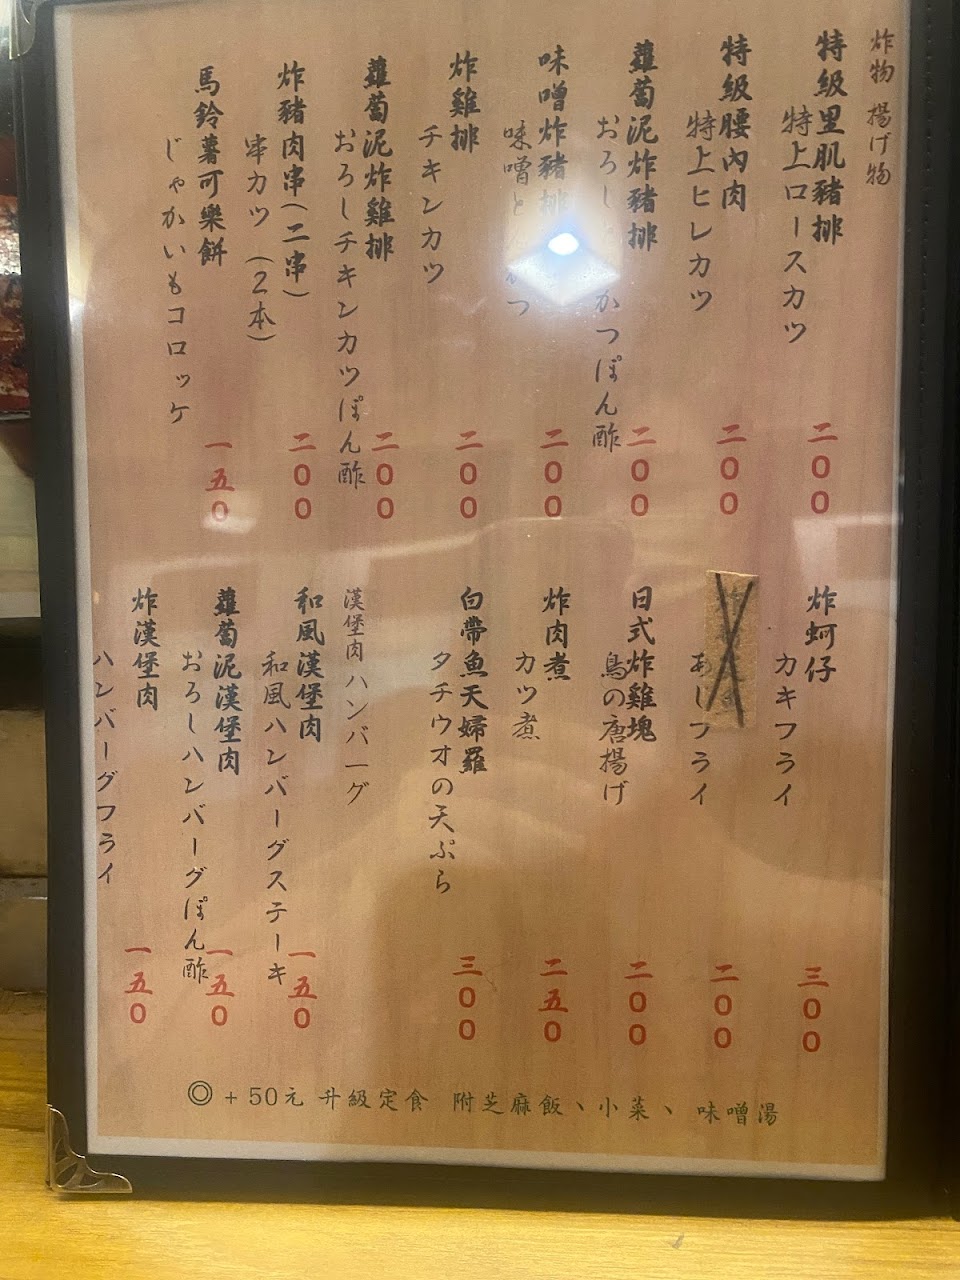 炸物 揚げ物
特級里肌豬排
特上ロースカツ
二00
特級腰內肉
特上ヒレカツ
二00
蘿蔔泥炸豬排
おろし かつぽん酢
二00
味噌炸豬排
味噌と つ
二00
炸雞排
チキンカツ
二00
蘿蔔泥炸雞排
おろしチキンカツぽん酢
二00
炸豬肉串(二串)
串カツ(2本)
二00
馬鈴薯可樂餅
じゃかいもコロッケ
一五0
炸蚵仔
カキフライ
三00
あじフライ
二00
日式炸雞塊
鳥の唐揚げ
二00
炸肉煮
カツ煮
二五0
白帶魚天婦羅
タチウオの天ぷら
三00
漢堡肉 ハンバーグ
和風漢堡肉
和風ハンバーグステーキ
一五0
蘿蔔泥漢堡肉
おろしハンバーグぽん酢
一五0
炸漢堡肉
ハンバーグフライ
一五0
◎+50元 升級定食 附芝麻飯、小菜、味噌湯